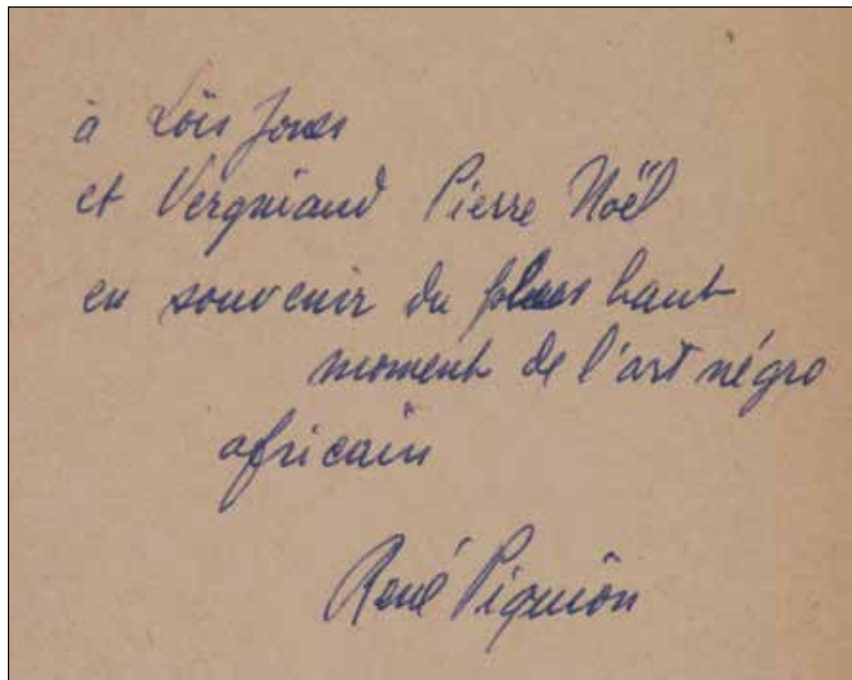 à Loïs Jones
et Vergniaud Pierre Noël
en souvenir du plus haut
moment de l'art négro
africain
René Piquion